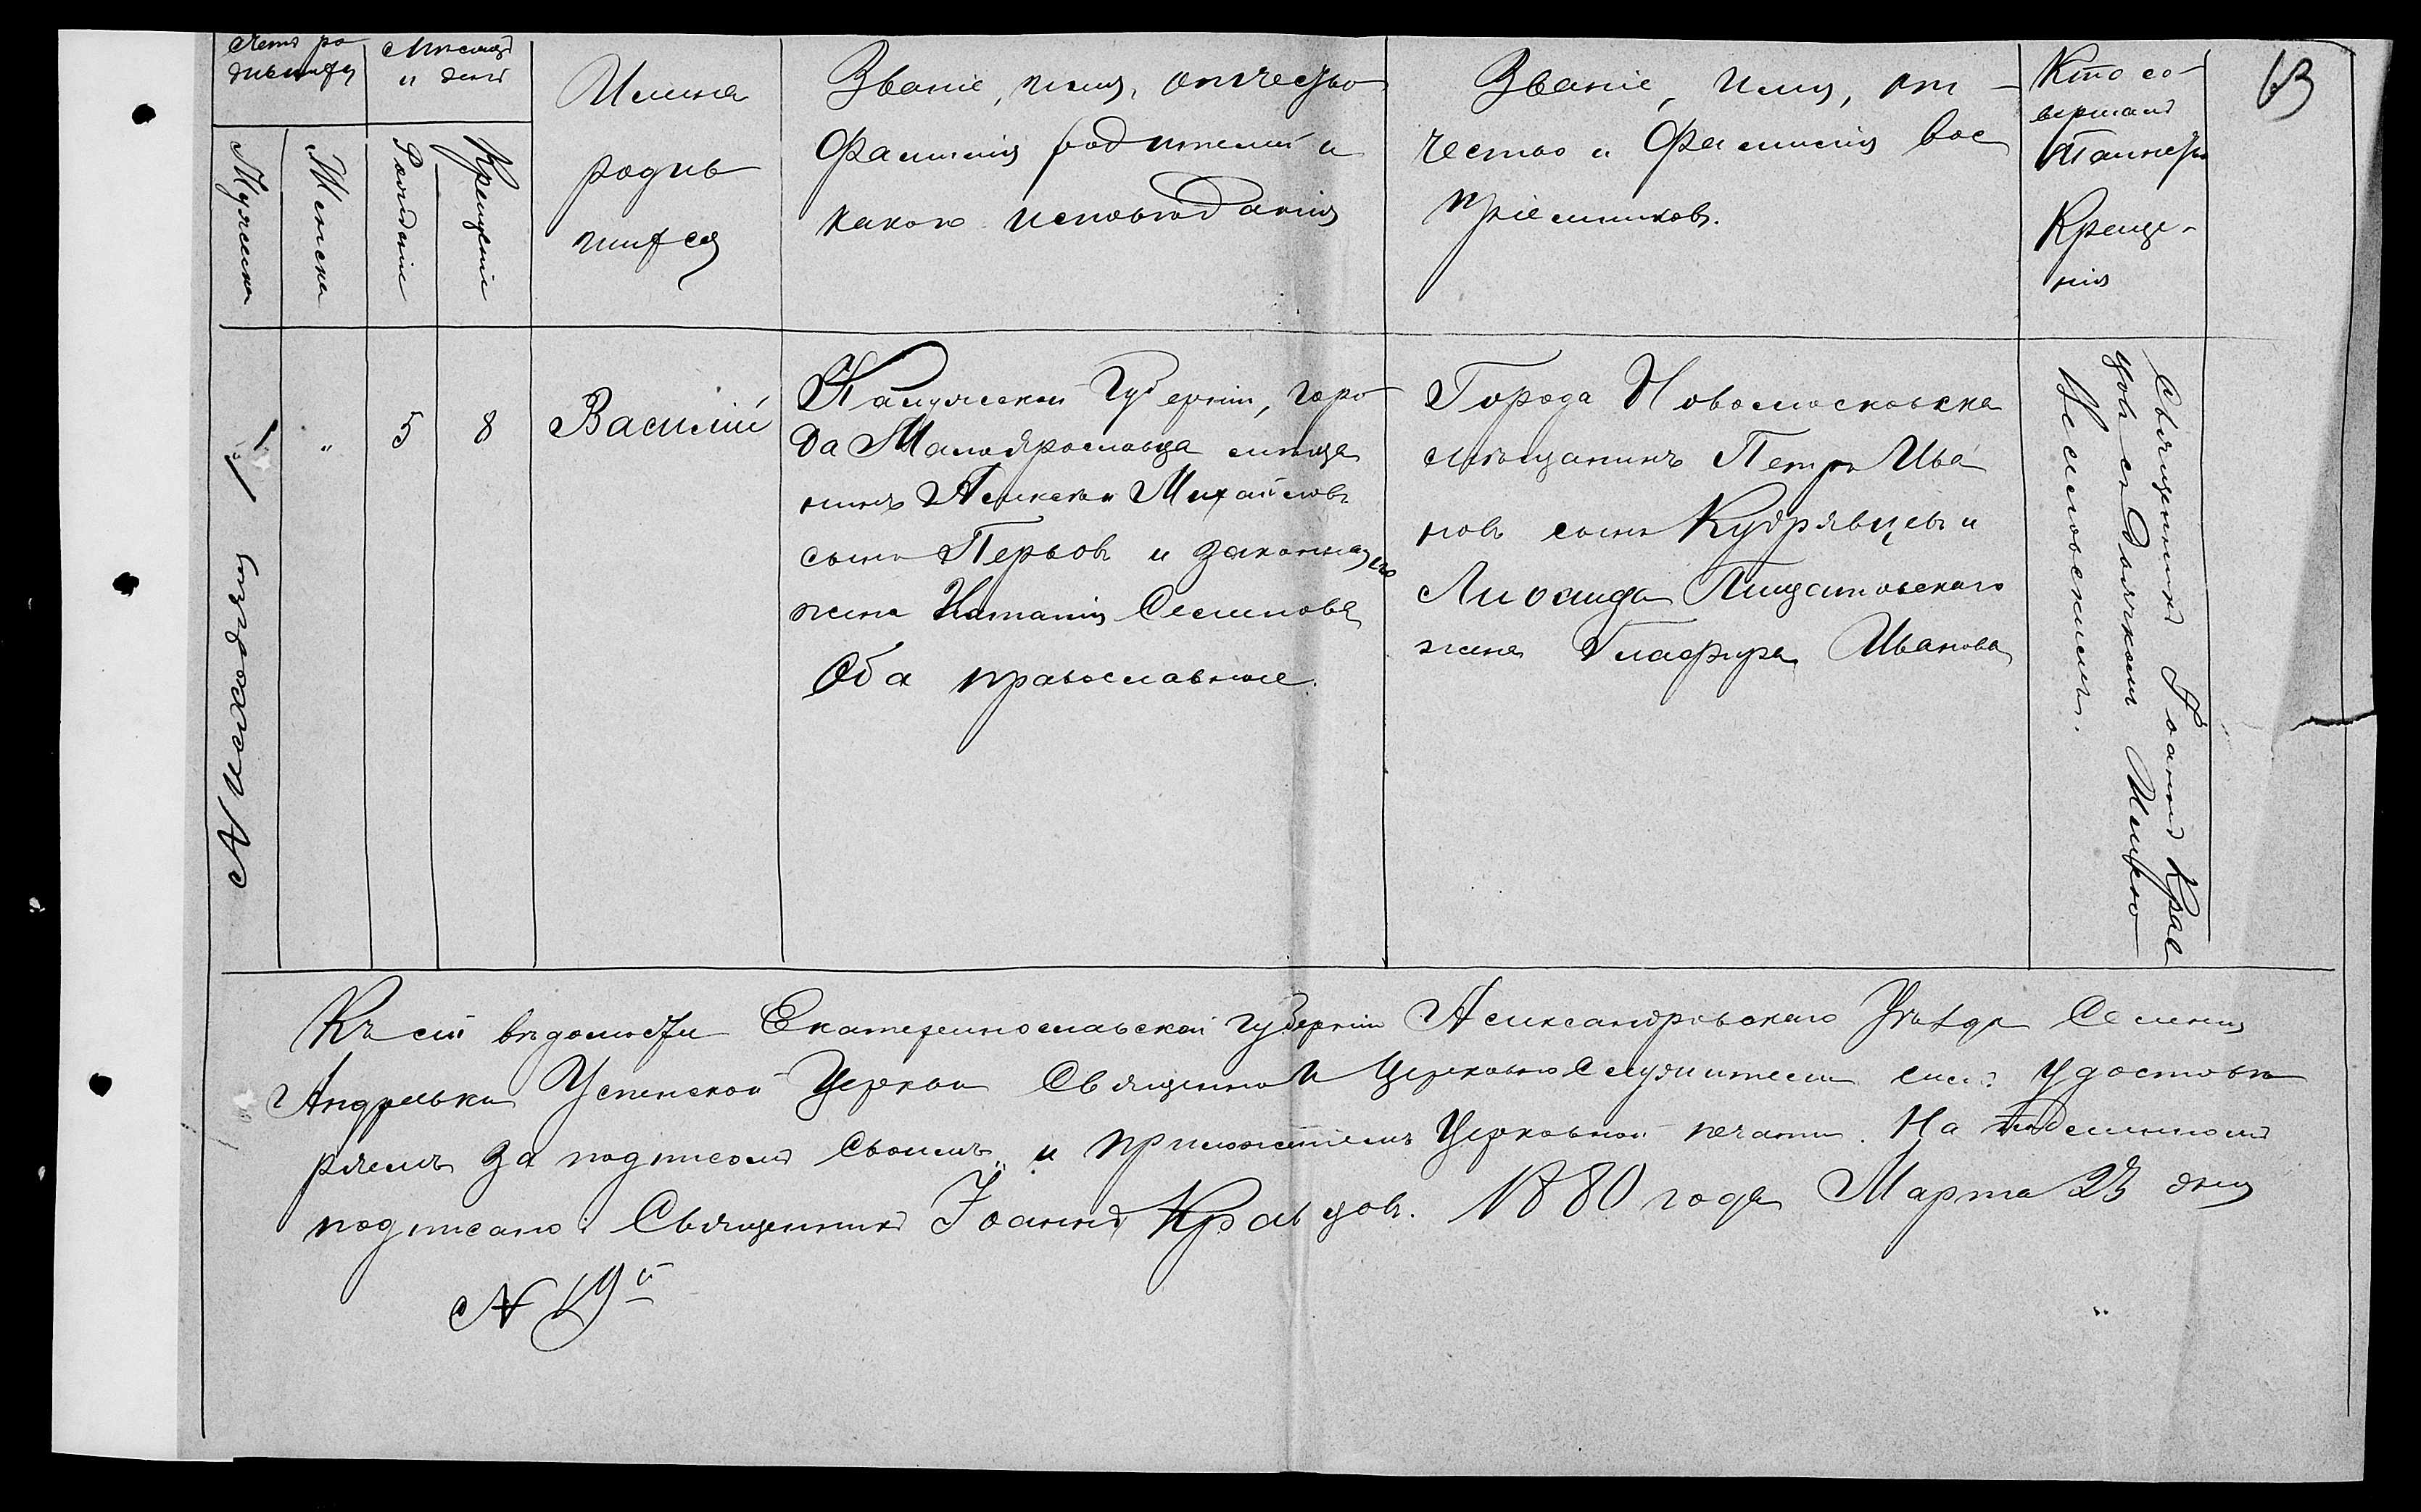 63
Счетъ ро
дившихся
Мѣсяцъ
и день
Мужеска
Женска
Рожденіе
Крещеніе
Имена
родив
шихся
Званіе, имя, отчество
Фамилія родителей и
какого исповѣданія
Званіе, имя, от-
чество и Фамилія вос
пріемниковъ.
Кто со-
вершалъ
таинство
Креще-
нія
1
"
5
8
Василій
Калужской Губерніи, горо
да Малоярославца мѣща
нинъ Алексѣй Михайловъ
сынъ Перьовъ и законная его
жена Наталія Семенова
Оба православные.
Города Новомосковска
мѣщанинъ Петръ Ива
новъ сынъ Кудрявцевъ и
жена Глафира Иванова
Священникъ Іоаннъ Крав
цовъ съ Дьячкомъ
Къ сей вѣдомости Екатеринославской губерніи Александровскаго Уѣзда Селенія
Андреевки Успенской Церкви Священно и Церковно Служители симъ удостовѣ
ряемъ за подписомъ своимъ и приложеніемъ Церковной печати. На подлинномъ
подписано: Священникъ Іоаннъ Кравцовъ. 1880 года Марта 23 дня
№ 19й